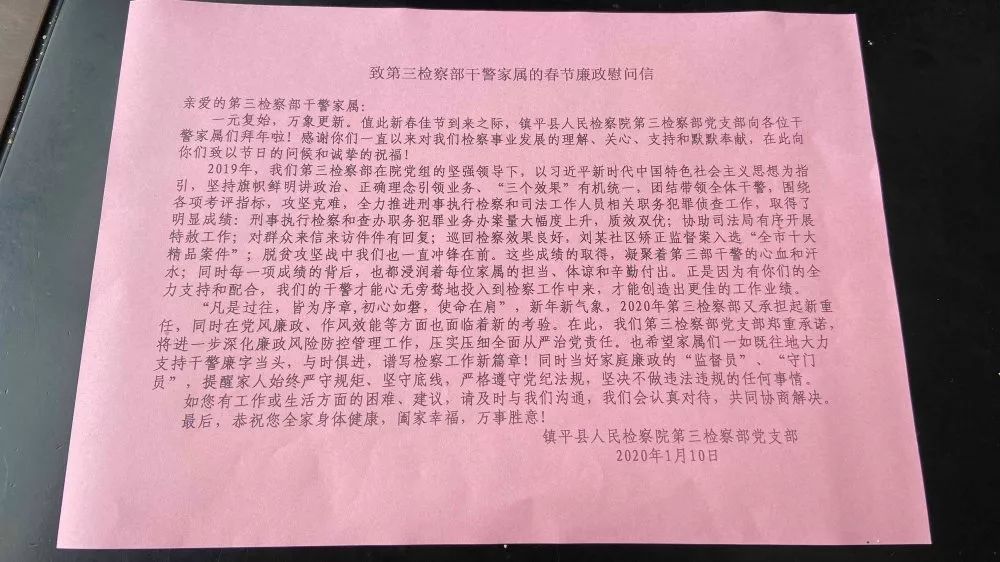 致第三检察部干警家属的春节廉政慰问信
亲爱的第三检察部干警家属：
一元复始，万象更新。值此新春佳节到来之际，镇平县人民检察院第三检察部党支部向各位干
警家属们拜年啦！感谢你们一直以来对我们检察事业发展的理解、关心、支持和默默奉献，在此向
你们致以节日的问候和诚挚的祝福！
2019年，我们第三检察部在院党组的坚强领导下，以习近平新时代中国特色社会主义思想为指
引，坚持旗帜鲜明讲政治、正确理念引领业务、“三个效果”有机统一，团结带领全体干警，围绕
各项考评指标，攻坚克难，全力推进刑事执行检察和司法工作人员相关职务犯罪侦查工作，取得了
明显成绩：刑事执行检察和查办职务犯罪业务办案量大幅度上升，质效双优；协助司法局有序开展
特赦工作；对群众来信来访件件有回复；巡回检察效果良好，刘某社区矫正监督案入选“全市十大
精品案件”；脱贫攻坚战中我们也一直冲锋在前。这些成绩的取得，凝聚着第三部干警的心血和汗
水；同时每一项成绩的背后，也都浸润着每位家属的担当、体谅和辛勤付出。正是因为有你们的全
力支持和配合，我们的干警才能心无旁骛地投入到检察工作中来，才能创造出更佳的工作业绩。
“凡是过往，皆为序章,初心如磐，使命在肩”，新年新气象，2020年第三检察部又承担起新重
任，同时在党风廉政、作风效能等方面也面临着新的考验。在此，我们第三检察部党支部郑重承诺，
将进一步深化廉政风险防控管理工作，压实压细全面从严治党责任。也希望家属们一如既往地大力
支持干警廉字当头，与时俱进，谱写检察工作新篇章！同时当好家庭廉政的“监督员”、“守门
员”，提醒家人始终严守规矩、坚守底线，严格遵守党纪法规，坚决不做违法违规的任何事情。
如您有工作或生活方面的困难、建议，请及时与我们沟通，我们会认真对待，共同协商解决。
最后，恭祝您全家身体健康，阖家幸福，万事胜意！
镇平县人民检察院第三检察部党支部
2020年1月10日